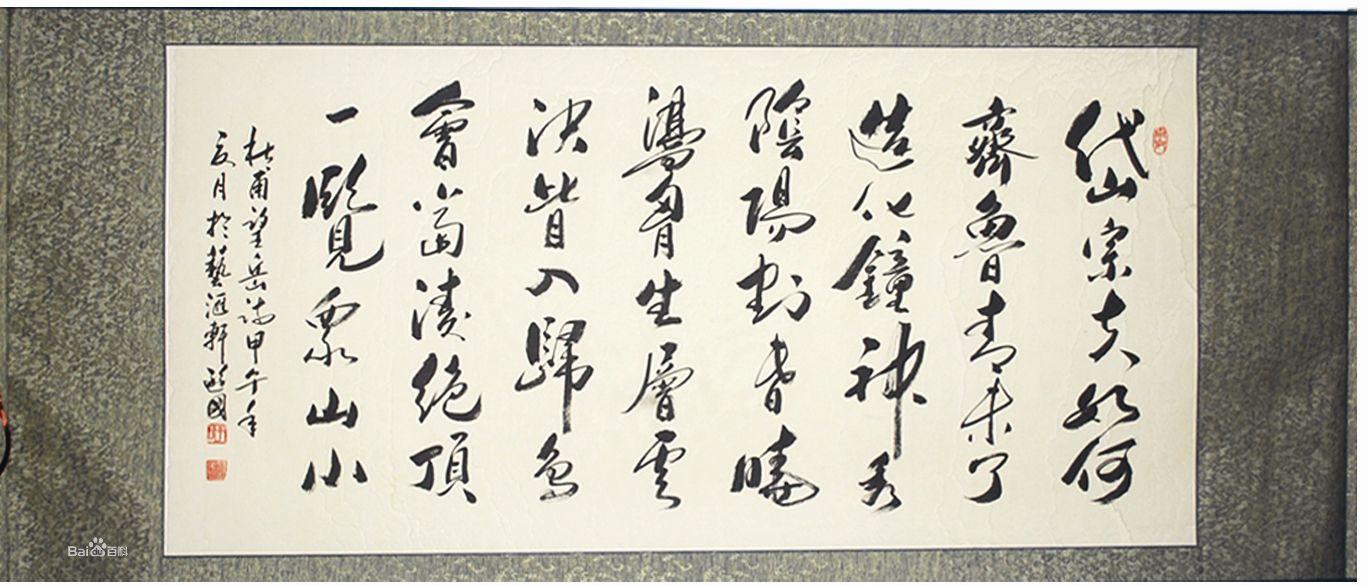 岱宗夫如何
齊魯青未了
造化鐘神秀
陰陽割昏曉
蕩胸生層雲
決眥入歸鳥
會當淩絕頂
一覽眾山小
杜甫望岳詩甲午年
夏月於藝滙軒國
Bai百科